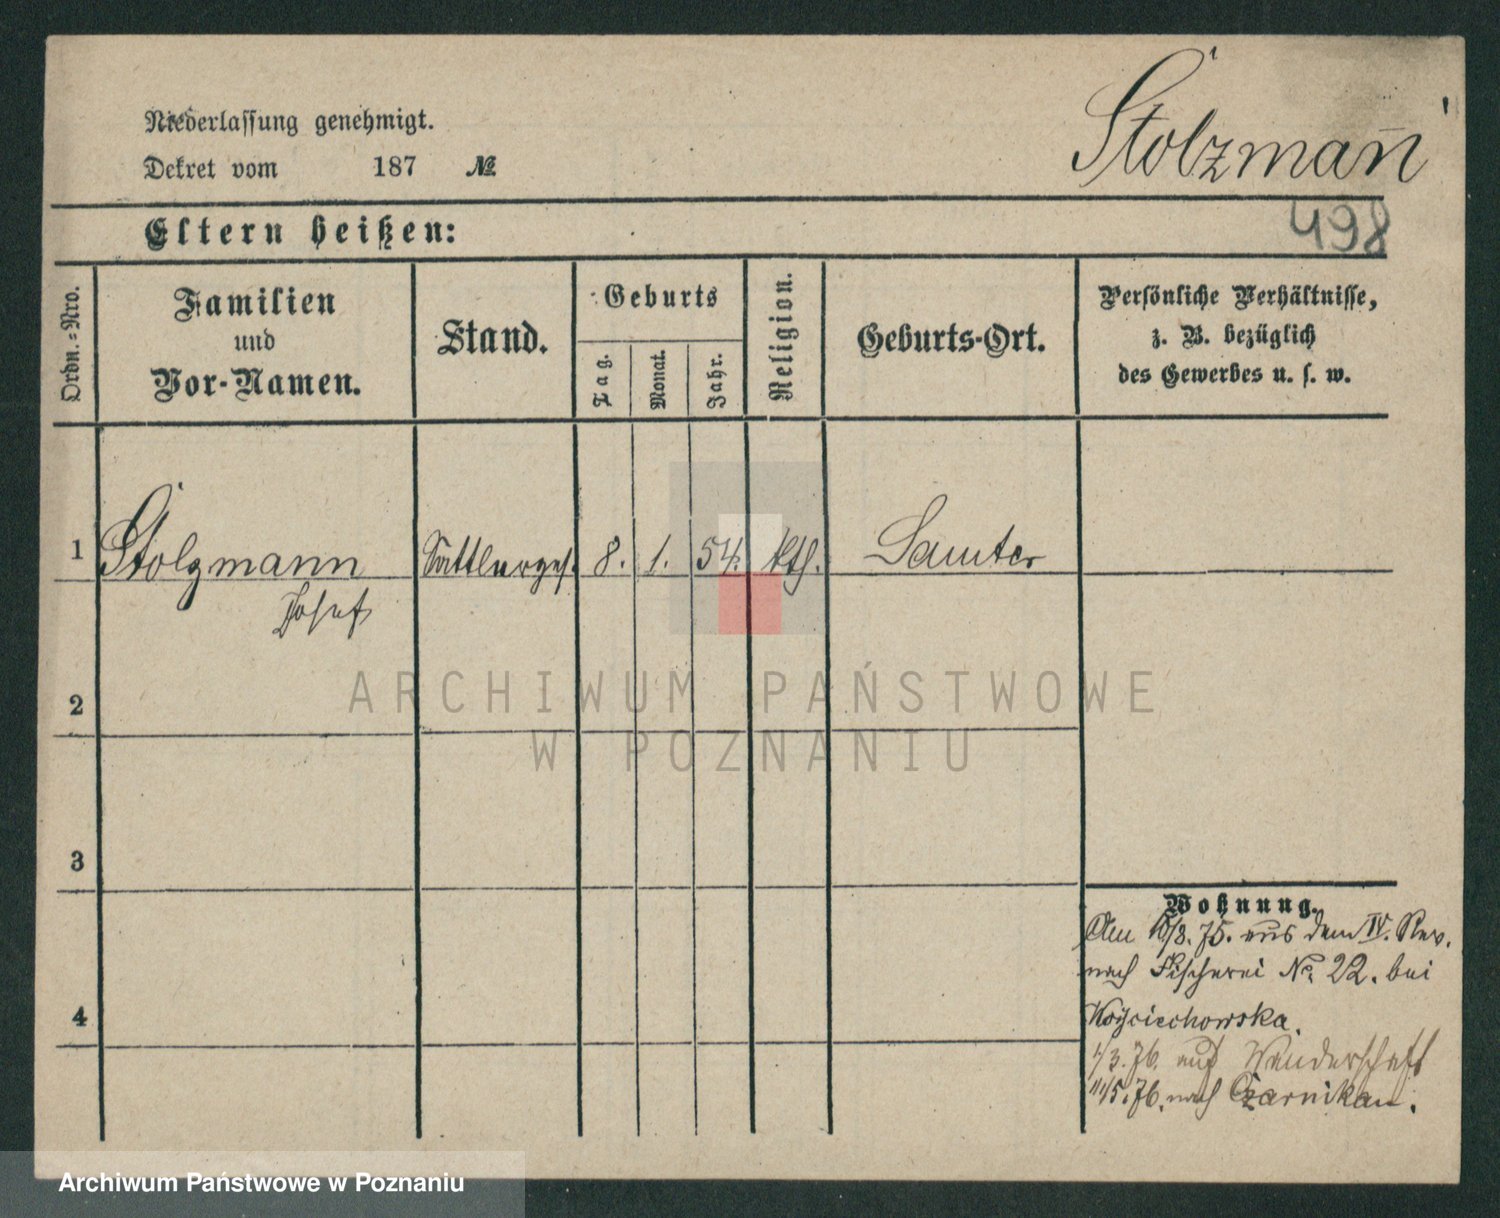 Stolzman̄
Niederlassung genehmigt.
Dekret vom 187 №
Eltern heißen:
498
Ordn.-Nro.
Familien
und
Vor-Namen.
Stand.
Geburts
Tag.
Monat.
Jahr.
Religion.
Geburts-Ort.
Persönliche Verhältnisse,
z. B. bezüglich
des Gewerbes u. s. w.
1 Stolzmann Sattlerges. 8. 1. 54. kth. Samter
Josef
2
3
4
Wohnung.
Am /8. 75. aus dem IV. Rev.
nach Fischerei No. 22. bei
Woyciechowska.
1/3. 76. auf Wanderschaft
11/5. 76. nach Czarnikau.
ARCHIWUM PAŃSTWOWE
W POZNANIU
Archiwum Państwowe w Poznaniu